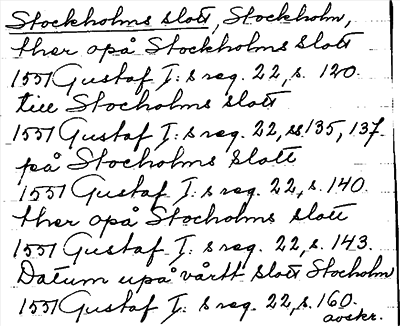 Stockholms slott, Stockholm,
ther opå Stockholms Slott
1551 Gustaf I:s reg. 22, s. 120.
till Stocholms slott
1551 Gustaf I:s reg. 22, ss 135, 137.
på Stocholms Slott
1551 Gustaf I:s reg. 22, s. 140.
ther opå Stocholms slott
1551 Gustaf I:s reg. 22, s. 143.
Datum upå vårtt slott Stocholm
1551 Gustaf I:s reg. 22, s. 160.
avskr.